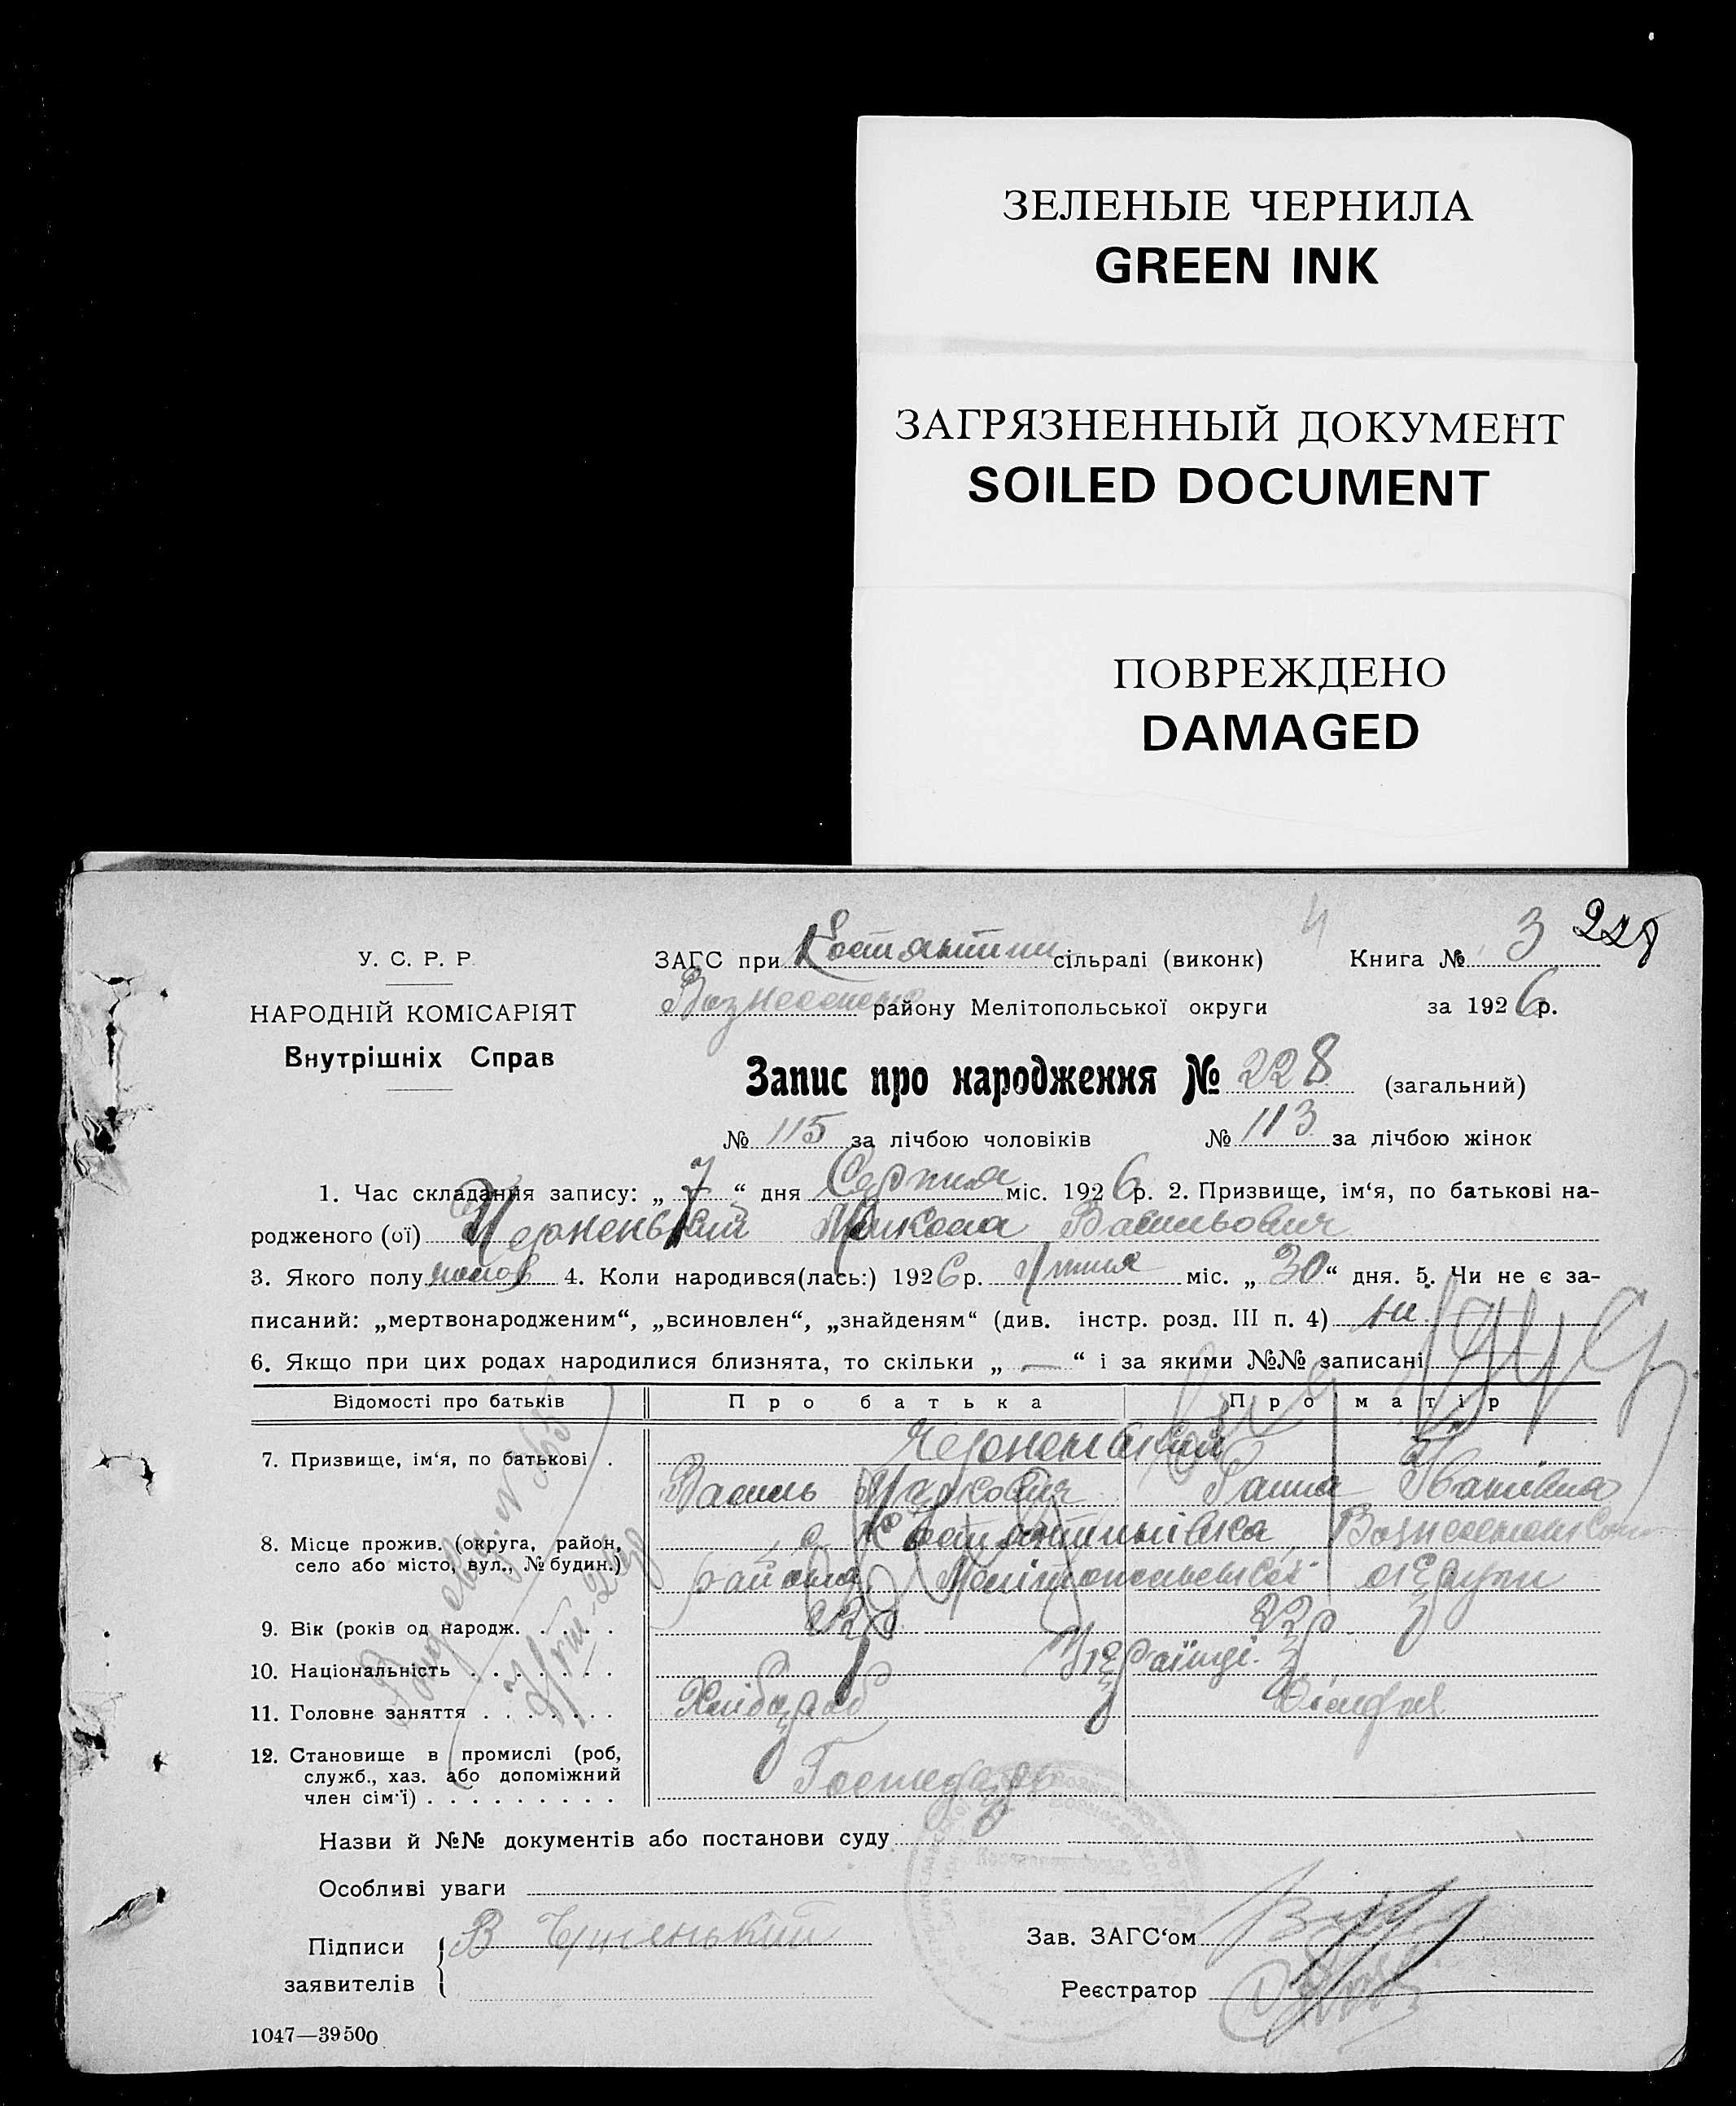 ЗЕЛЕНЫЕ ЧЕРНИЛА
GREEN INK
ЗАГРЯЗНЕННЫЙ ДОКУМЕНТ
SOILED DOCUMENT
ПОВРЕЖДЕНО
DAMAGED
4
228
У. С. Р. Р.
НАРОДНІЙ КОМІСАРІЯТ
Внутрішніх Справ
ЗАГС при Костянтин сільраді (виконк) Книга № 3
району Мелітопольської округи за 1926 р.
Запис про народження № 228 (загальний)
№ 115 за лічбою чоловіків № 113 за лічбою жінок
1. Час складання запису: „ 7 “ дня Серпня міс. 1926 р. 2. Призвище, ім‘я, по батькові на-
родженого (ої) Чорненький Микола Васильович
3. Якого полу 4. Коли народився(лась:) 1926 р. Липня міс. „ 30 “ дня. 5. Чи не є за-
писаний: „мертвонародженим“, „всиновлен“, „знайденям“ (див. інстр. розд. III п. 4) ні
6. Якщо при цих родах народилися близнята, то скільки „ — “ і за якими №№ записані
Відомості про батьків Про батька Про матір
7. Призвище, ім‘я, по батькові .
Василь Маркович Ганна Іванівна
8. Місце прожив. (округа, район, село або місто, вул., № будин.) с. Костянтинівка
району Мелітопольської округи
9. Вік (років од народж. . . . . 22 р 22 р
10. Національність . . . . . . . Українці
11. Головне заняття . . . . . . . Хлібороб
12. Становище в промислі (роб, служб., хаз. або допоміжний член сім‘ї) . . . . . . . . . Господарь
Назви й №№ документів або постанови суду
Особливі уваги
Підписи заявителів В Чорненький
Зав. ЗАГС‘ом
Реєстратор
1047—39500